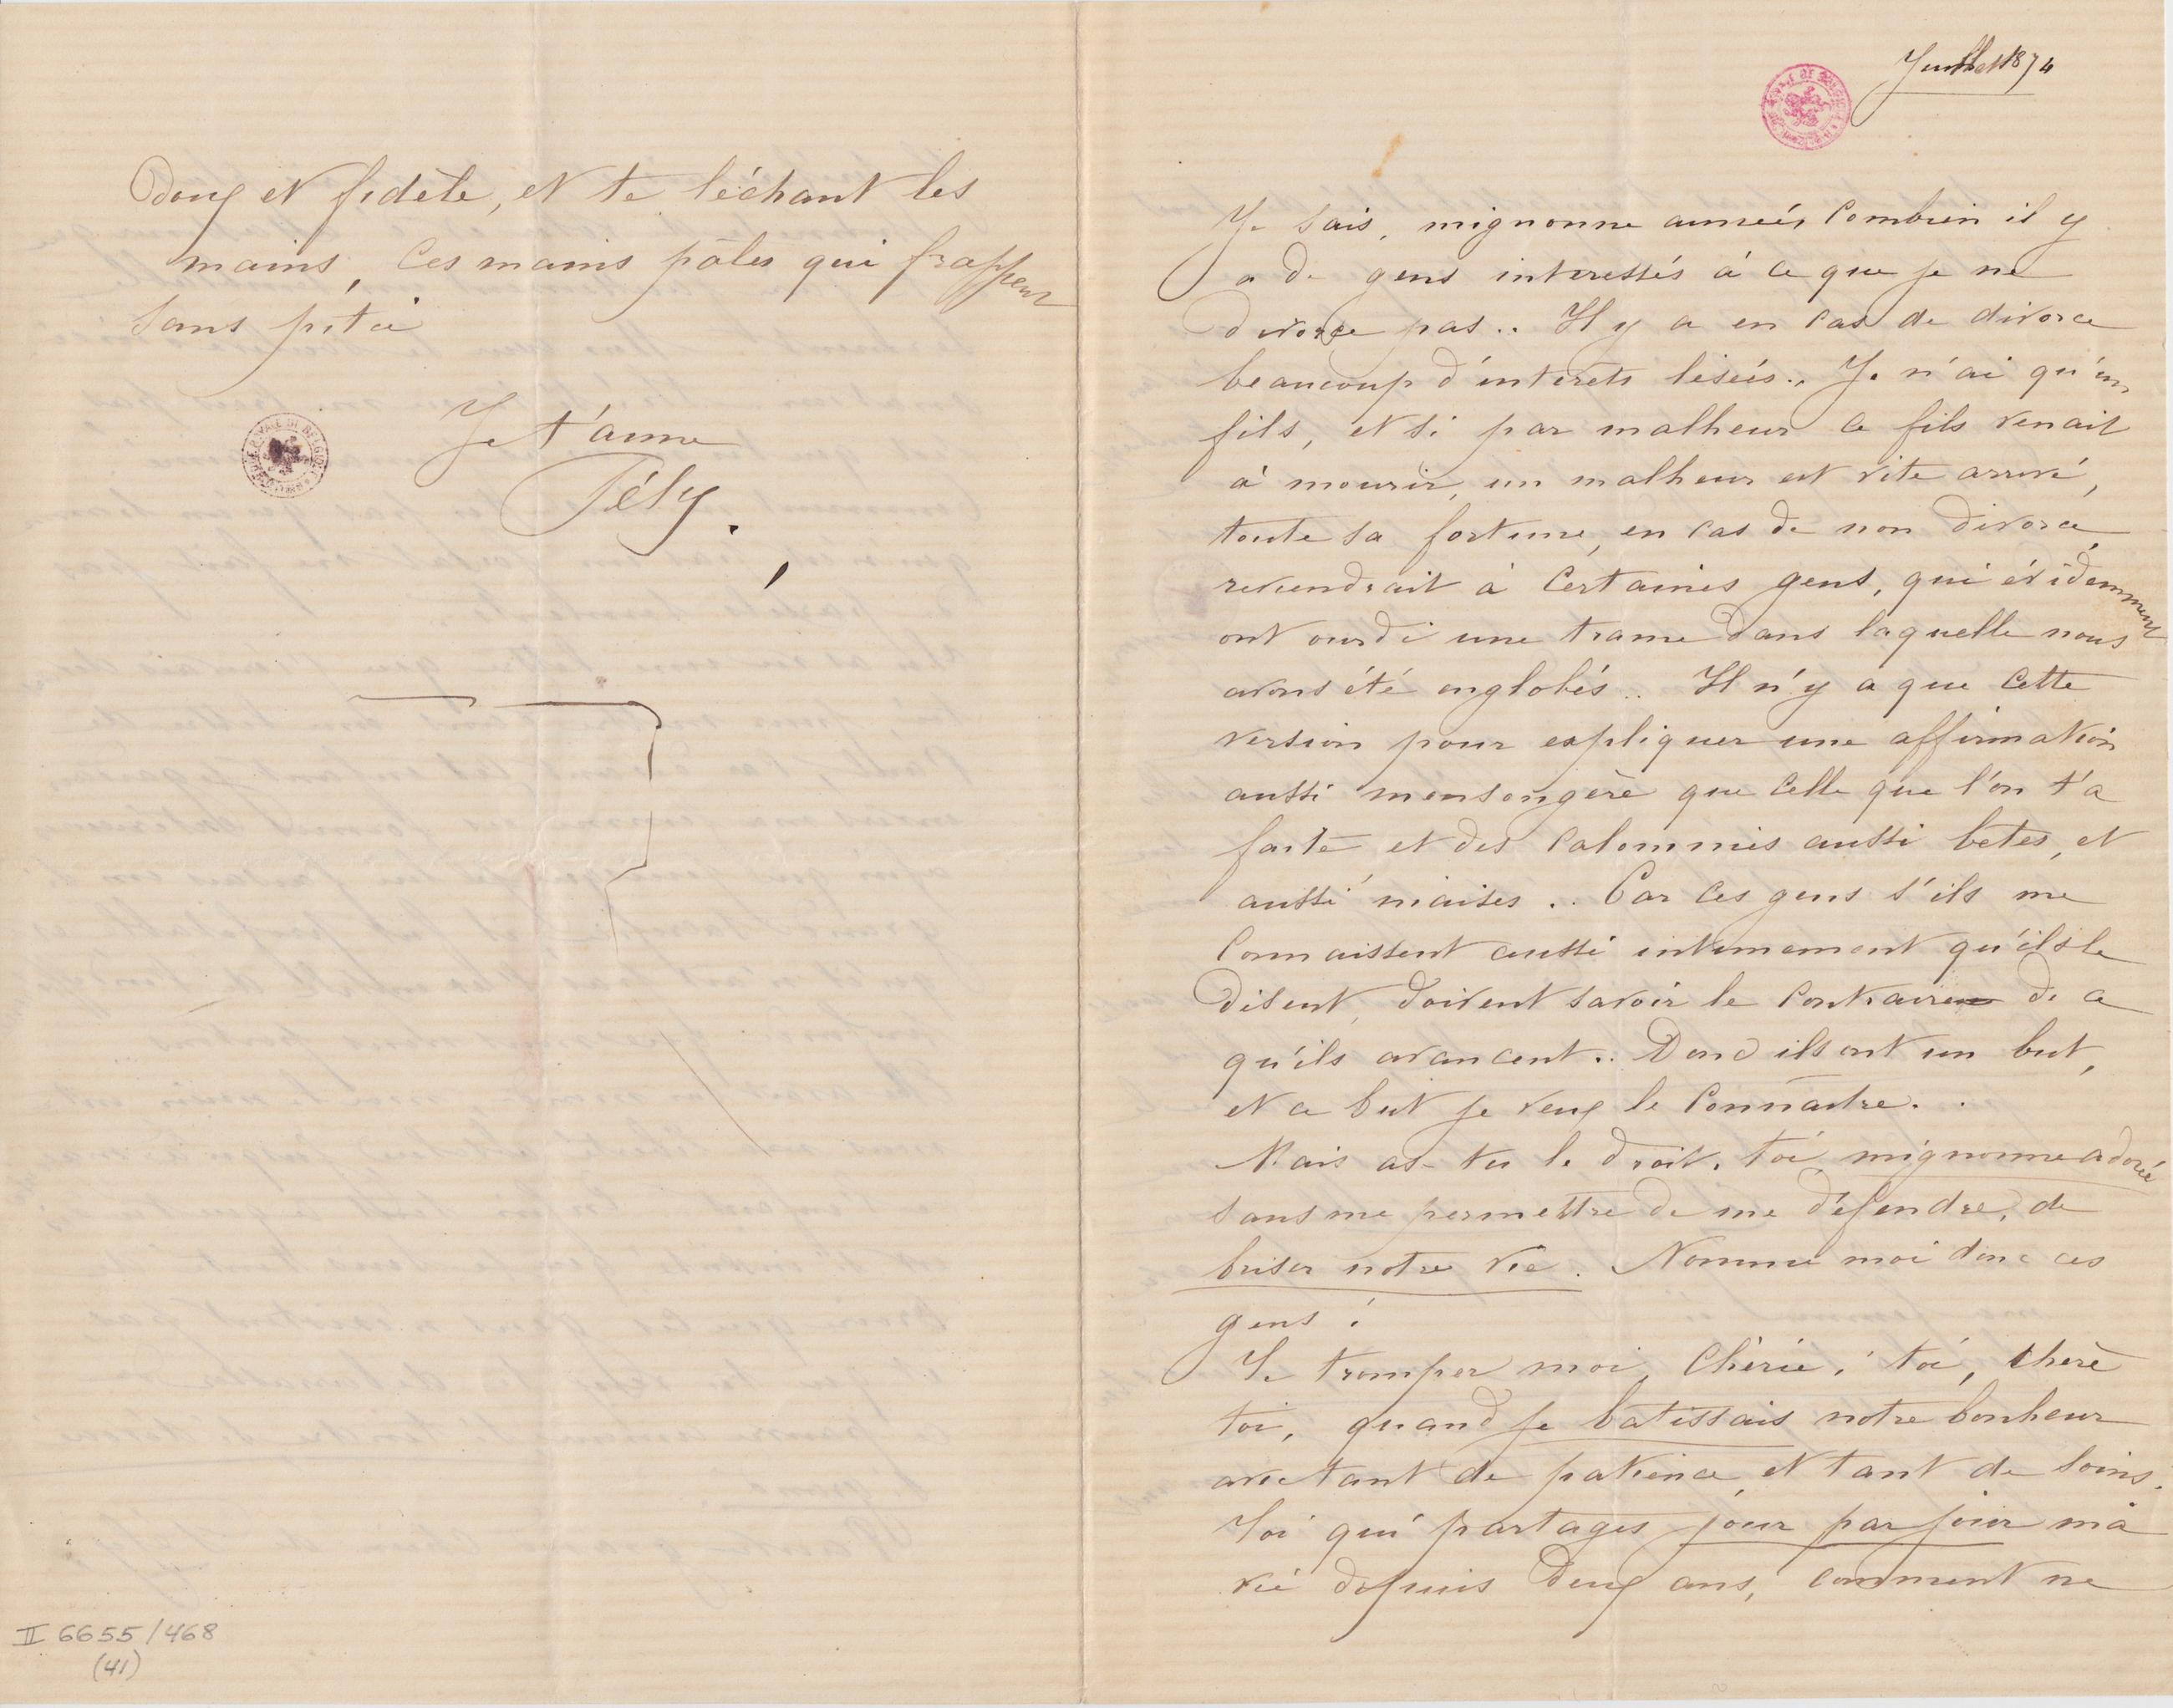 Doux et fidèle, et te léchant les
mains, ces mains pâles qui frappent
sans pitié
Je t'aime
Fély.
II 6655/468
(41)
Juillet 1874
Je sais, mignonne aimée, combien il y
a de gens interessés à ce que je ne
divorce pas.. Il y a en cas de divorce
beaucoup d'intérets lésés.. Je n'ai qu'un
fils, et si par malheur ce fils venait
à mourir, un malheur est vite arrivé,
toute sa fortune, en cas de non divorce,
reviendrait à certaines gens, qui évidemment
ont ourdi une trame dans laquelle nous
avons été englobés.. Il n'y a que cette
version pour expliquer une affirmation
aussi mensongère que celle que l'on t'a
faite et des calomnies aussi betes, et
aussi niaises.. Car ces gens s'ils me
connaissent aussi intimement qu'ils le
disent, doivent savoir le contraire de ce
qu'ils avancent.. Donc ils ont un but,
et ce but je veux le connaitre..
Mais as-tu le droit, toi, mignonne adorée
sans me permettre de me défendre, de
briser notre vie. Nomme moi donc ces
gens!
Te tromper moi, chérie! toi, chère
toi, quand je batissais notre bonheur
avec tant de patience, et tant de soins.
Toi qui partages jour par jour ma
vie depuis deux ans, comment ne